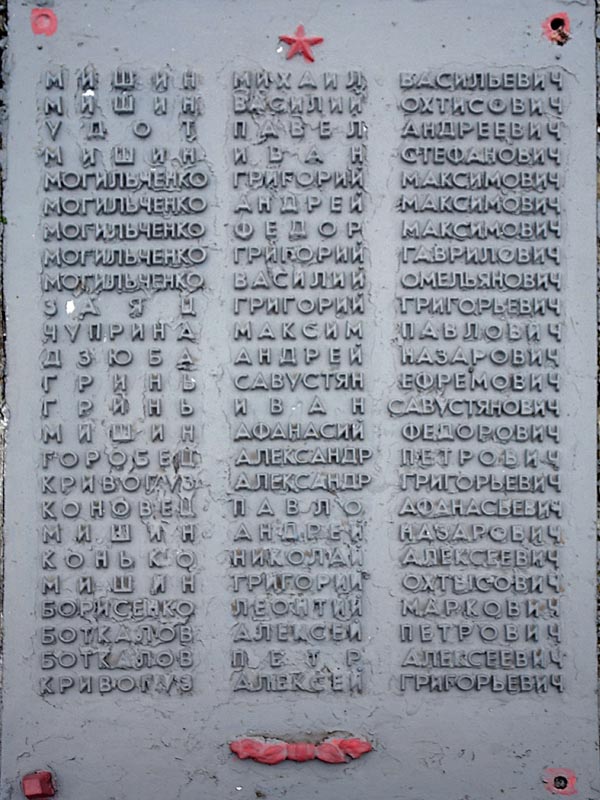 МИШИН МИХАИЛ ВАСИЛЬЕВИЧ
МИШИН ВАСИЛИЙ ОХТИСОВИЧ
УДОТ ПАВЕЛ АНДРЕЕВИЧ
МИШИН ИВАН СТЕФАНОВИЧ
МОГИЛЬЧЕНКО ГРИГОРИЙ МАКСИМОВИЧ
МОГИЛЬЧЕНКО АНДРЕЙ МАКСИМОВИЧ
МОГИЛЬЧЕНКО ФЕДОР МАКСИМОВИЧ
МОГИЛЬЧЕНКО ГРИГОРИЙ ГАВРИЛОВИЧ
МОГИЛЬЧЕНКО ВАСИЛИЙ ОМЕЛЬЯНОВИЧ
ЗАЯЦ ГРИГОРИЙ ГРИГОРЬЕВИЧ
ЧУПРИНА МАКСИМ ПАВЛОВИЧ
ДЗЮБА АНДРЕЙ НАЗАРОВИЧ
ГРИНЬ САВУСТЯН ЕФРЕМОВИЧ
ГРИНЬ ИВАН САВУСТЯНОВИЧ
МИШИН АФАНАСИЙ ФЕДОРОВИЧ
ГОРОБЕЦ АЛЕКСАНДР ПЕТРОВИЧ
КРИВОГУЗ АЛЕКСАНДР ГРИГОРЬЕВИЧ
КОНОВЕЦ ПАВЛО АФАНАСЬЕВИЧ
МИШИН АНДРЕЙ НАЗАРОВИЧ
КОНЬКО НИКОЛАЙ АЛЕКСЕЕВИЧ
МИШИН ГРИГОРИЙ ОХТЫСОВИЧ
БОРИСЕНКО ЛЕОНТИЙ МАРКОВИЧ
БОТКАЛОВ АЛЕКСЕЙ ПЕТРОВИЧ
БОТКАЛОВ ПЕТР АЛЕКСЕЕВИЧ
КРИВОГУЗ АЛЕКСЕЙ ГРИГОРЬЕВИЧ